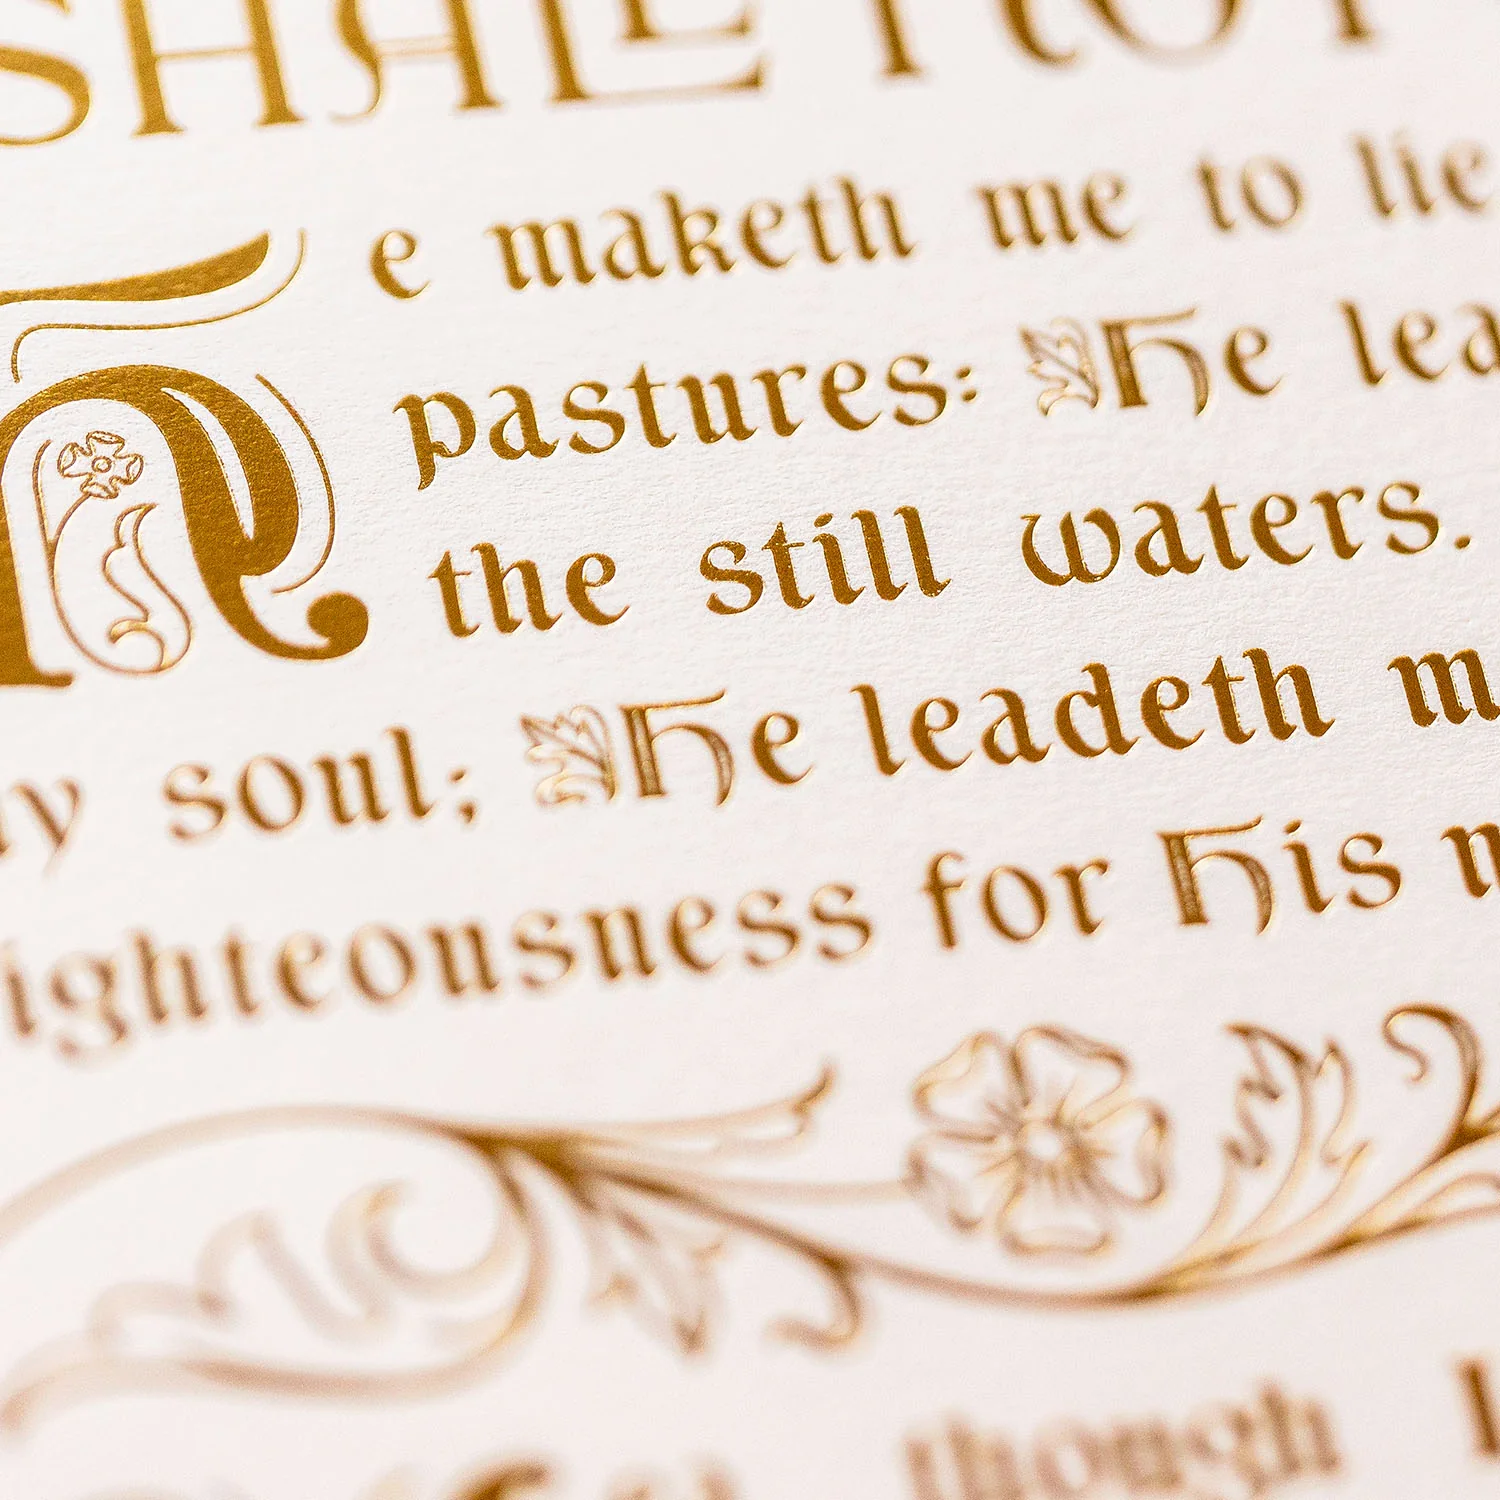 SHALL NOT
He maketh me to lie
pastures: He lea
the still waters.
y soul; He leadeth m
ighteousness for His n
though I